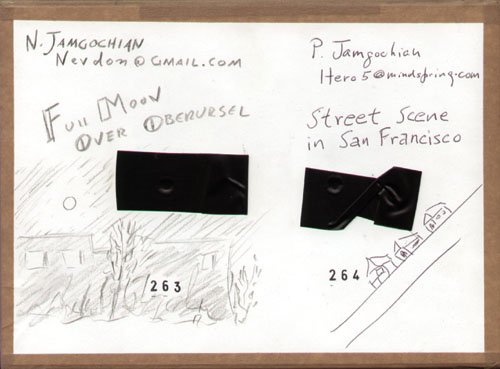 N. JAMGOCHIAN
Nevdon@GMAIL.COM
FULL MOON
OVER OBERURSEL
263
P. Jamgochian
Hero5@mindspring.com
Street Scene
in San Francisco
264